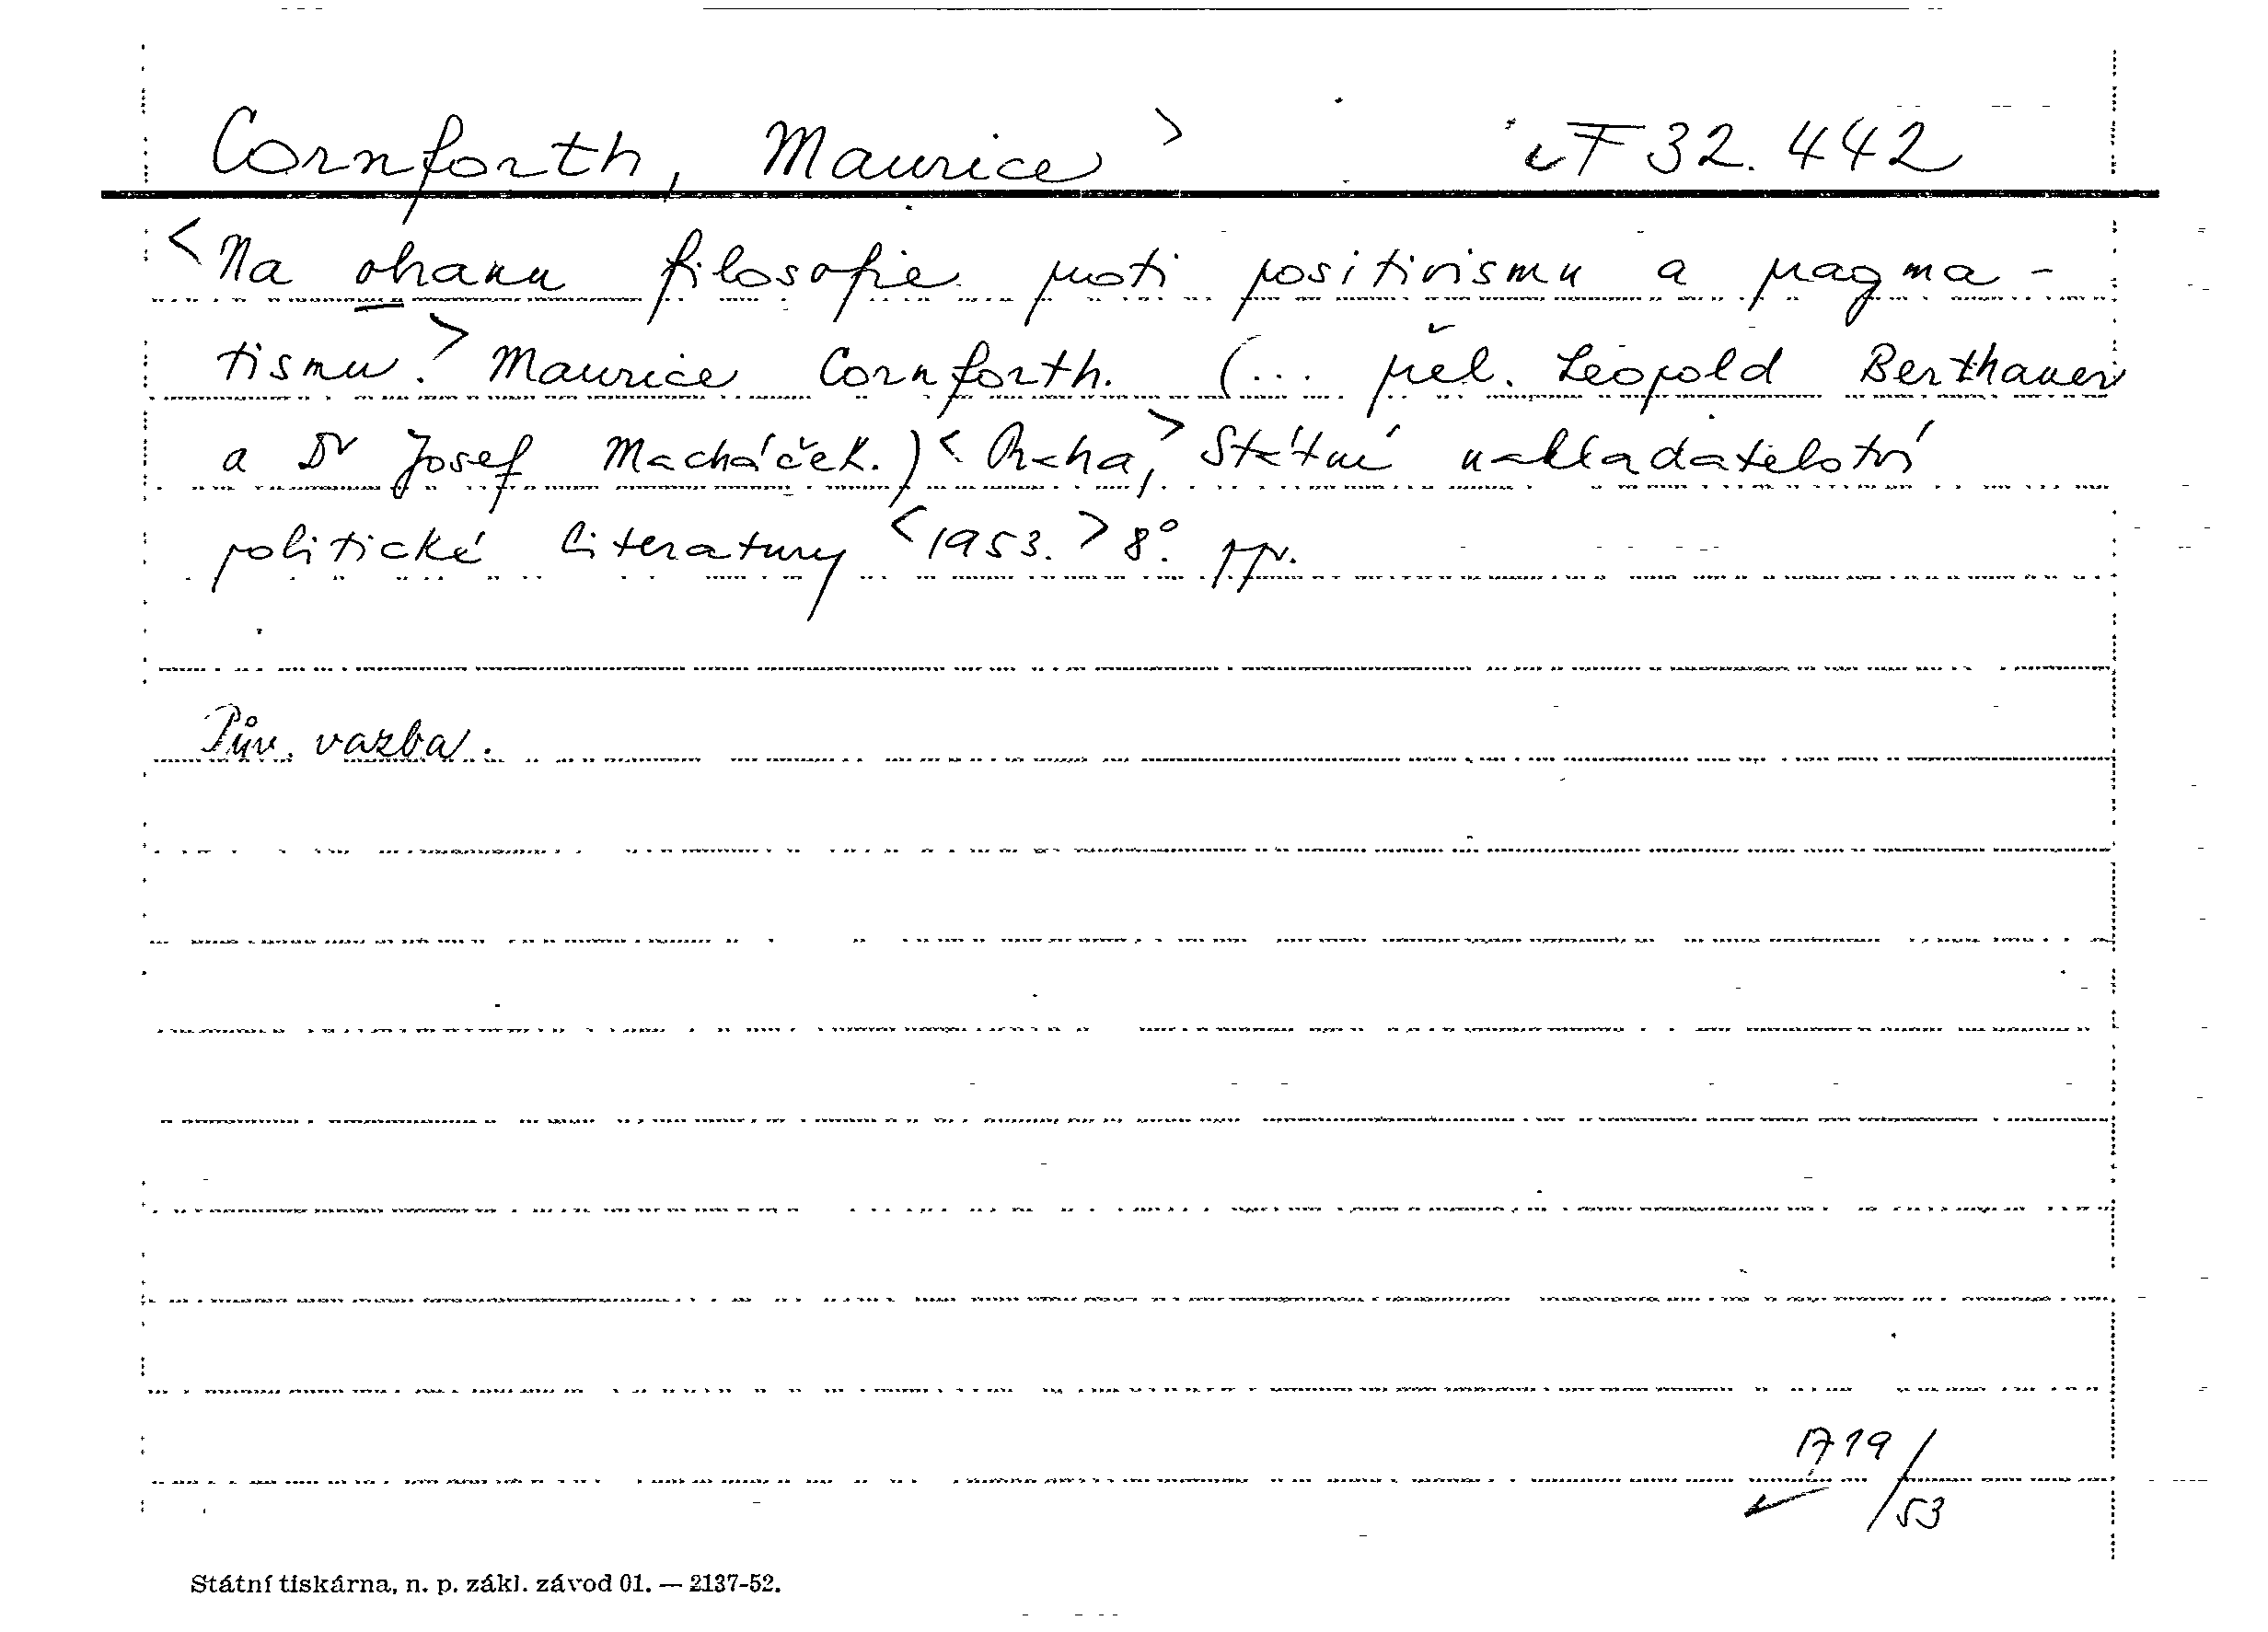 Cornforth, Maurice > F 32.442
<Na obranu filosofie proti positivismu a pragma-
tismu.> Maurice Cornforth. (... přel. Leopold Berthauer
a Dr Josef Macháček.) <Praha,> Státní nakladatelství
politické literatury <1953.> 8°. ppv.
Pův. vazba.
A 19/53
Státní tiskárna, n. p. zákl. závod 01. — 2137-52.